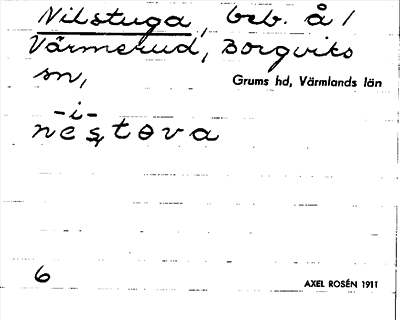 Nilstuga, beb. å 1
Värmerud, Borgviks
sn,
Grums hd, Värmlands län
-i-
nestova
6
AXEL ROSÉN 1911